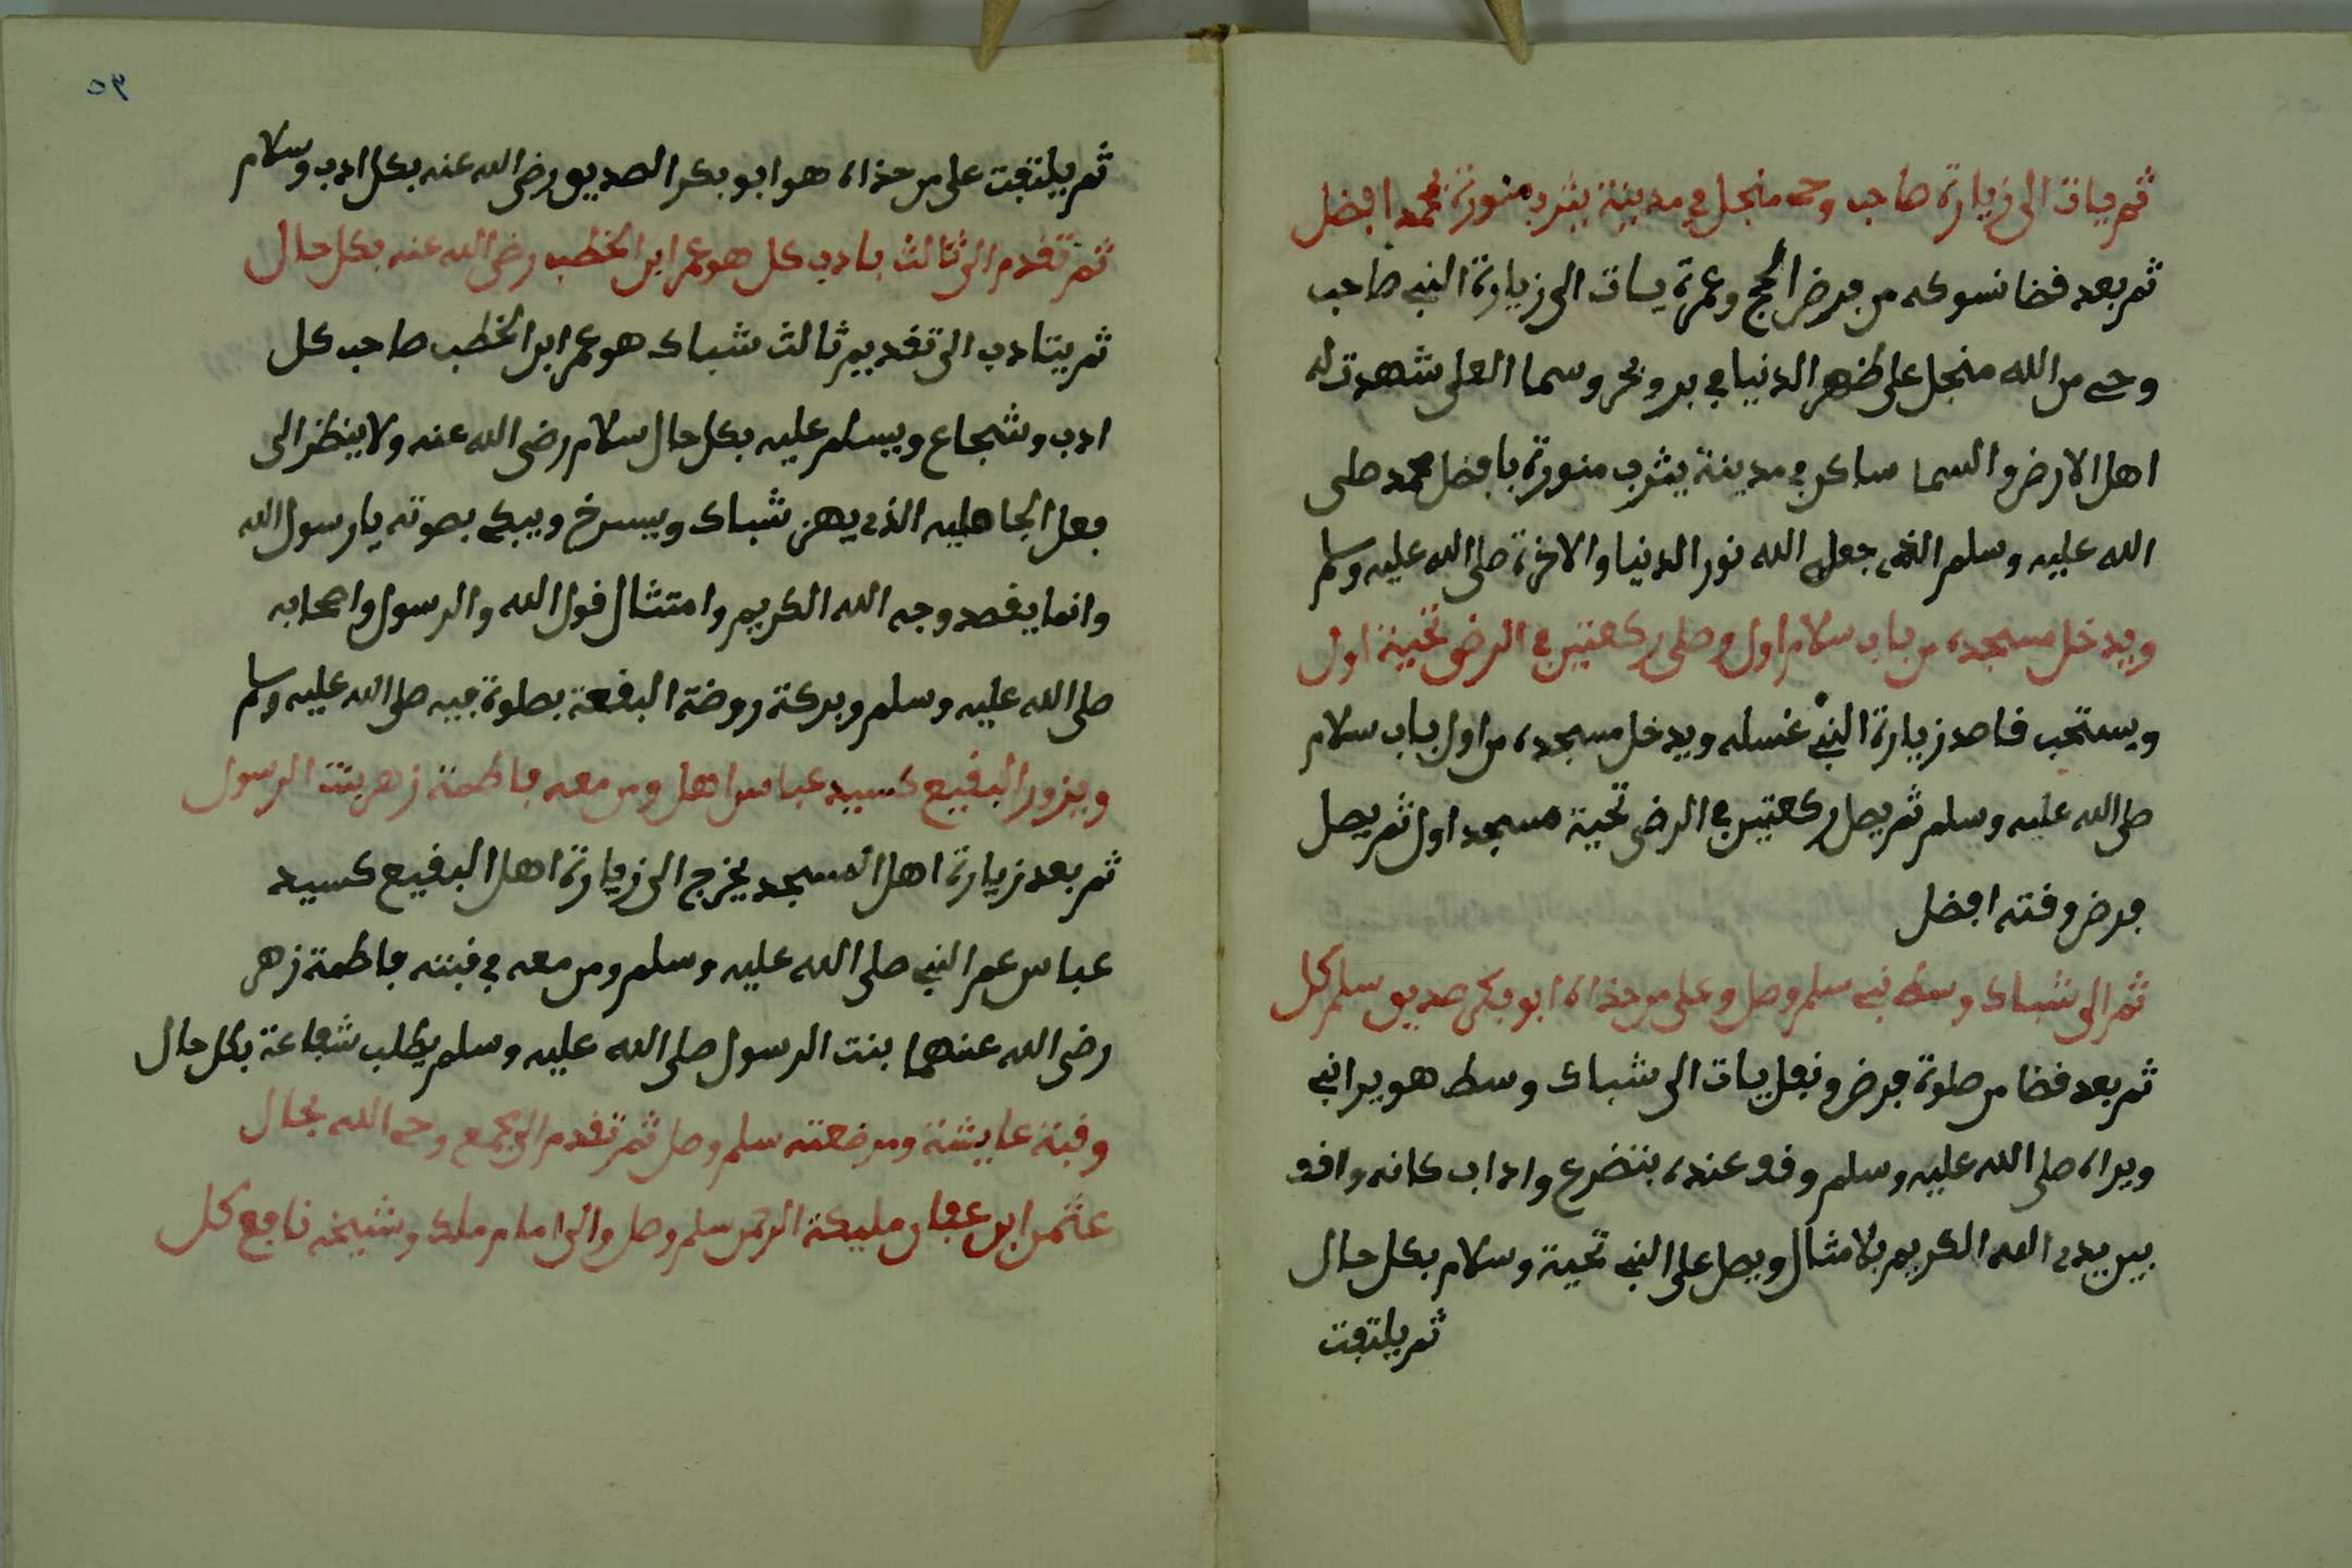 ثم يات الى زيارة صاحب وحى منجل في مدينة يثرب منورة بمحمد افضل
ثم بعد قضا نسوكه من فرض الحج وعمرة يات الى زيارة النبي صاحب
وحي من الله منجل على ظهر الدنيا في بر وبحر وسما العلى شهدت له
اهل الارض والسما ساكن في مدينة يثرب منورة بافضل محمد صلى
الله عليه وسلم الذي جعل الله نور الدنيا والاخرة صلى الله عليه وسلم
ويدخل مسجده من باب سلام اول وصلى ركعتين في الرض تحينة اول
ويستحب قاصد زيارة النبي غسله ويدخل مسجده من اول باب سلام
صلى الله عليه وسلم ثم يصل ركعتين في الرض تحية مسجد اول ثم يصل
فرض وقته افضل
ثم الى شباك وسط نبي سلم وصل وعلى من حذاه ابو بكر صديق سلم كل
ثم بعد قضا من صلوة فرض ونفل يات الى شباك وسط هو يرا نبي
ويراه صلى الله عليه وسلم وقف عنده بتضرع واداب كانه واقف
بين يدي الله الكريم بلا مثال ويصل على النبي تحية وسلام بكل حال
ثم يلتفت
٥٩
ثم يلتفت على من حذاه هو ابو بكر الصديق رضى الله عنه بكل ادب وسلام
ثم تقدم الى ثالث بادب كل هو عمر ابن الخطب رضى الله عنه بكل حال
ثم يتادب الى تقديم ثالث شباك هو عمر ابن الخطب صاحب كل
ادب وشجاع ويسلم عليه بكل حال سلام رضى الله عنه ولا ينظر الى
فعل الجاهليه الذي يهز شباك ويسرخ ويبكي بصوته يا رسول الله
وانما يقصد وجه الله الكريم وامتثال قول الله والرسول واصحابه
صلى الله عليه وسلم وبركة روضة البقعة بصلوة فيه صلى الله عليه وسلم
ويزور البقيع كسيد عباس اهل ومن معه فاطمة زهر بنت الرسول
ثم بعد زيارة اهل المسجد يخرج الى زيارة اهل البقيع كسيد
عباس عم النبي صلى الله عليه وسلم ومن معه في قبته فاطمة زهر
رضى الله عنهما بنت الرسول صلى الله عليه وسلم يطلب شفاعة بكل حال
وقبة عايشة ومرضعته سلم وصل ثم تقدم الى جمع وحي الله بحال
عثمن ابن عفان مليكة الرحمن سلم وصل والى امام ملك وشيخه نافع كل